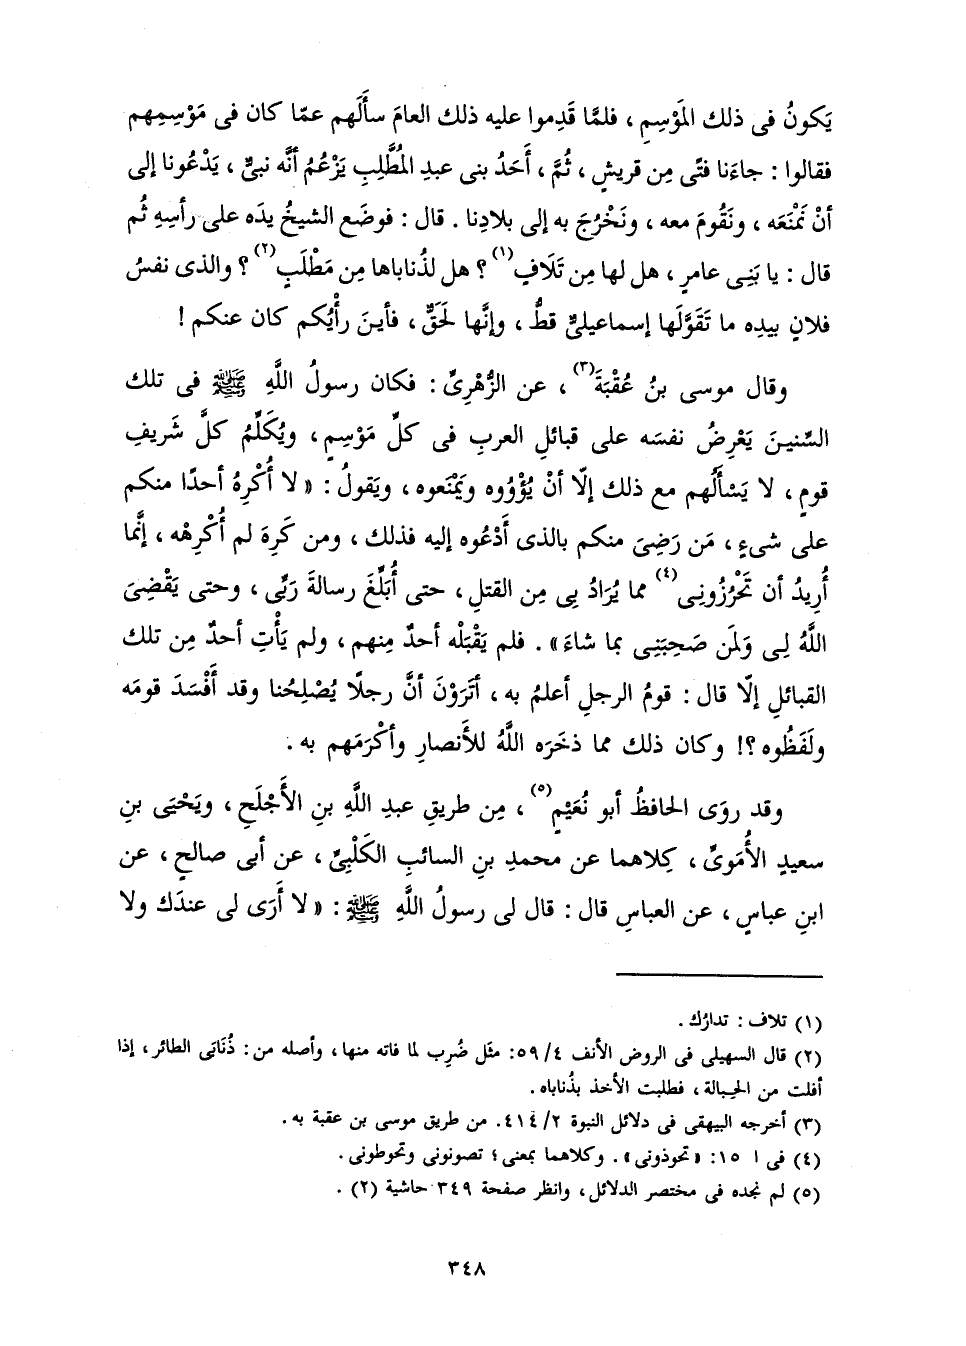 يَكونُ فى ذلك المَوْسِمِ ، فلمَّا قَدِموا عليه ذلك العامَ سأَلَهم عمّا كان فى مَوْسِمِهم
فقالوا : جاءَنا فتًى مِن قريشٍ ، ثُمَّ ، أحَدُ بنى عبدِ المُطَّلِبِ يَزْعُمُ أنَّه نبىٌّ ، يَدْعُونا إلى
أنْ نَمْنَعَه ، ونَقُومَ معه ، ونَخْرُجَ به إلى بلادِنا . قال : فوضَع الشيخُ يدَه على رأسِه ثُم
قال : يا بَنِى عامرٍ ، هل لها مِن تَلَافٍ(١) ؟ هل لذُناباها مِن مَطْلَبٍ(٢) ؟ والذى نفسُ
فلانٍ بيدِه ما تَقَوَّلَها إسماعيلىٌّ قطُّ ، وإنَّها لَحَقٌّ ، فأينَ رأْيُكم كان عنكم !
وقال موسى بنُ عُقْبَةَ(٣) ، عن الزُّهْرِىِّ : فكان رسولُ اللَّهِ ﷺ فى تلك
السِّنينَ يَعْرِضُ نفسَه على قبائلِ العربِ فى كلِّ مَوْسِمٍ ، ويُكَلِّمُ كلَّ شَريفِ
قومٍ ، لا يَسْأَلُهم مع ذلك إلّا أنْ يُؤْوُوه ويَمْنَعوه ، ويَقولُ : « لا أُكْرِهُ أحدًا منكم
على شىءٍ ، مَن رَضِىَ منكم بالذى أَدْعُوه إليه فذلك ، ومن كَرِهَ لم أُكْرِهْه ، إنَّما
أُرِيدُ أن تَحْرُزُونِى(٤) مما يُرَادُ بِى مِن القتلِ ، حتى أُبَلِّغَ رسالةَ رَبِّى ، وحتى يَقْضِىَ
اللَّهُ لِى ولمَن صَحِبَنِى بما شاءَ » . فلم يَقْبَلْه أحدٌ مِنهم ، ولم يَأْتِ أحدٌ مِن تلك
القبائلِ إلّا قال : قومُ الرجلِ أعلمُ به ، أتَرَوْنَ أنَّ رجلًا يُصْلِحُنا وقد أَفْسَدَ قومَه
ولَفَظُوه ؟! وكان ذلك مما ذخَرَه اللَّهُ للأَنصارِ وأكْرَمَهم به .
وقد روَى الحافظُ أبو نُعَيْمٍ(٥) ، مِن طريقِ عبدِ اللَّهِ بنِ الأَجْلَحِ ، ويَحْيَى بنِ
سعيدٍ الأُمَوىِّ ، كِلاهما عن محمدِ بنِ السائبِ الكَلْبِىِّ ، عن أبى صالحٍ ، عن
ابنِ عباسٍ ، عن العباسِ قال : قال لى رسولُ اللَّهِ ﷺ : « لا أَرَى لى عندَك ولا
(١) تلاف : تدارُك .
(٢) قال السهيلى فى الروض الأنف ٤/ ٥٩: مثَل ضُرِب لما فاته منها، وأصله من: ذُنَابَى الطائر ، إذا
أفلت من الحِبالة ، فطلبت الأخذ بذُناباه.
(٣) أخرجه البيهقى فى دلائل النبوة ٢/ ٤١٤. من طريق موسى بن عقبة به .
(٤) فى ا ١٥: « تحوذونى ». وكلاهما بمعنى؛ تصونونى وتحوطونى.
(٥) لم نجده فى مختصر الدلائل، وانظر صفحة ٣٤٩ حاشية (٢) .
٣٤٨